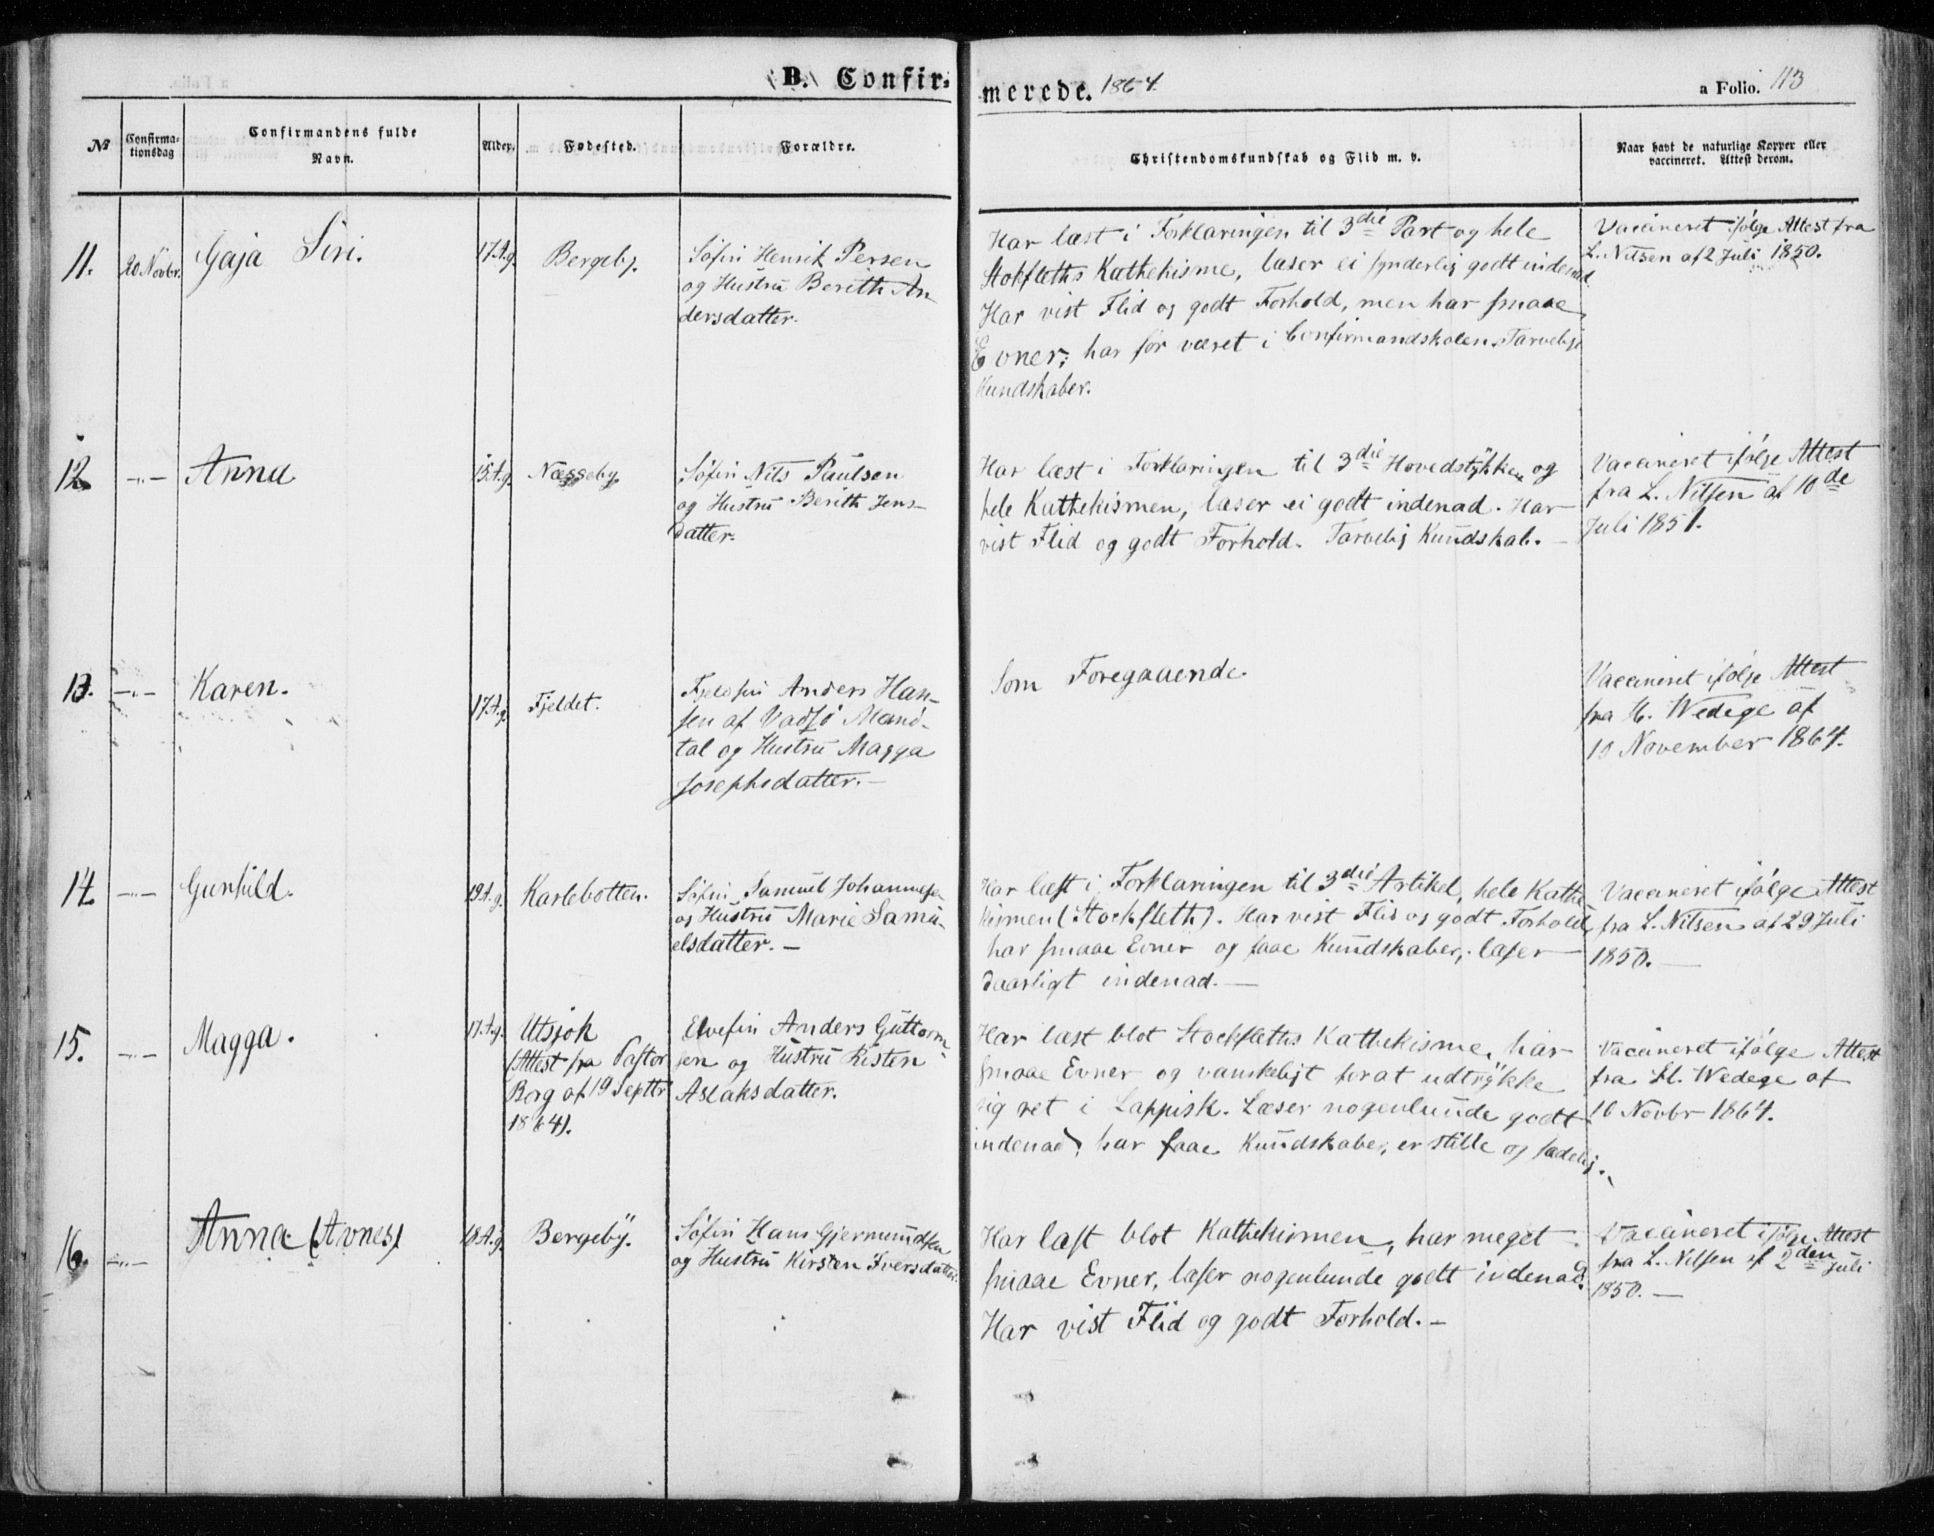 B. Confir-
merede. 1864.
a Folio. 113
No
Confirma-
tionsdag
Confirmandens fulde
Navn.
Alder.
Fødested.
Forældre.
Christendomskundskab og Flid m. v.
Naar havt de naturlige Kopper eller
vaccineret. Attest derom.
11.
20 Novbr.
Gaja Siri.
17 A. g.
Bergeby.
Søfin Henrik Persen
og Hustru Berith An
dersdatter.
Har læst i Forklaringen til 3die Part og hele
Stokfleths Kathekisme, læser ei synderlig godt indenad
Har vist Flid og godt Forhold, men har smaae
Evner; har før været i Confirmandskolen. Tarvelige
Kundskaber.
Vaccineret ifølge Attest fra
L. Nilsen af 2 Juli 1850.
12
-"-
Anna
15 A. g.
Næsseby
Søfin Nils Paulsen
og Hustru Berith Jens-
datter.
Har læst i Forklaringen til 3die Hovedstykke og
hele Kathekismen, læser ei godt indenad. Har
vist Flid og godt Forhold. Tarvelig Kundskab. -
Vaccineret ifølge Attest
fra L. Nilsen af 10de
Juli 1851.
13.
-"-
Karen.
17 A. g.
Fjeldet.
Fjeldfin Anders Han-
sen af Vadsø Mand-
tal og Hustru Magga
Josephsdatter. -
Som Foregaaende
Vaccineret ifølge Attest
fra H. Wedege af
10 November 1864.
14
-"-
Gunhild.
19 A. g.
Karlebotten.
Søfin Samuel Johannesen
og Hustru Marie Samu-
elsdatter. -
Har læst i Forklaringen til 3die Artikel, hele Kathe-
kismen (Stockfleth). Har vist Flid og godt Forhold,
har smaae Evner og faae Kundskaber, læser
daarligt indenad. -
Vaccineret ifølge Attest
fra L. Nilsen af 29 Juli
1850. -
15.
-"-
Magga.
17 A. g.
Utsjok
(Attest fra Pastor
Borg af 19 Septbr
1864).
Elvefin Anders Guttorm-
sen og Hustru Risten
Aslaksdatter.
Har læst blot Stockfleths Kathekisme, har
smaae Evner og vanskeligt for at udtrykke
sig ret i Lappisk. Læser nogenlunde godt
indenad, har faae Kundskaber, er stille og sædelig.
Vaccineret ifølge Attest
fra H. Wedege af
10 Novbr 1864.
16.
-"-
Anna (Avnes)
18 A. g.
Bergeby.
Søfin Hans Gjermundsen
og Hustru Kirsten Iversdatter.
Har læst blot Kathekismen, har meget
smaae Evner, læser nogenlunde godt indenad.
Har vist Flid og godt Forhold. -
Vaccineret ifølge Attest
fra L. Nilsen af 2den Juli
1850. -